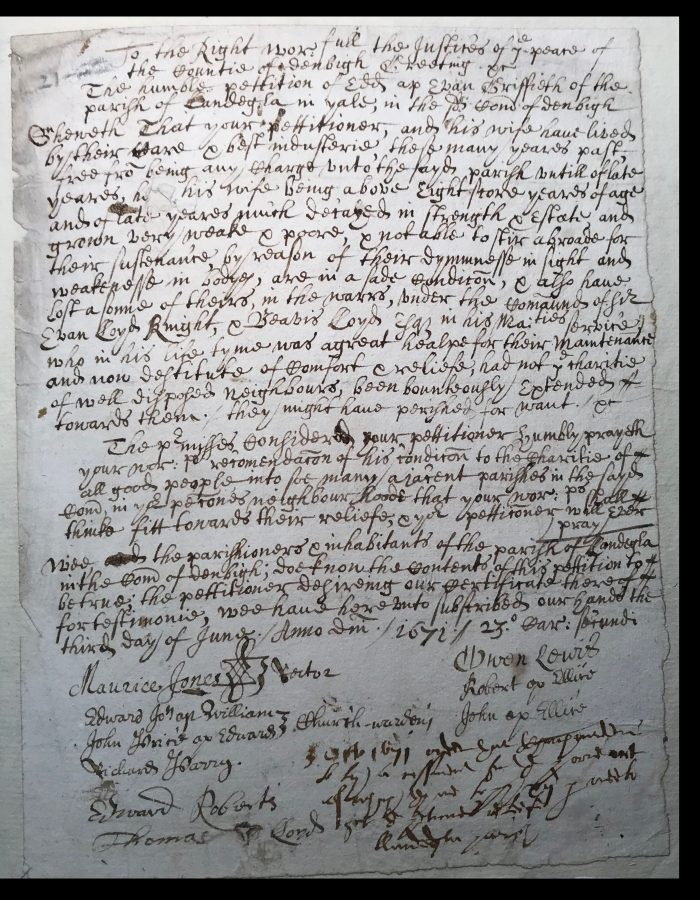 21
To the Right wor:full the Justices of ye peace of
the Countie of denbigh Greeting &c
The humble pettition of Edd ap Evan Griffieth of the
parish of Landegla in yale, in the Com̄ of denbigh
Sheweth That your pettitioner, and his wife have lived
by their Care & best industerie these many yeares past
free fro being any Charge unto the sayd parish untill of late
yeares, he his wife being above Eight score yeares of age
and of late yeares much decayed in strength & Estate and
grown very weake & poore, & not able to stir abroade for
their sustenance by reason of their dymnesse in sight and
weaknesse in bodyes, are in a sade Condicōn, & also have
lost a sonne of theirs, in the warrs, under the Comaund of Sir
Evan Loyd Knight, & Beavis Loyd Esqr in his Maities service,
who in his life tyme was a great healpe for their Maintenance
and now destitute of Comfort & reliefe, had not ye charitie
of well disposed neighbours, been bounteously Extended
towards them / they might have perished for want / &c
The pr'misses Considered your pettitioner humbly prayeth
your wor: pp recomendacōn of his condicōn to the Charitie of
all good people into soe many ajacent parishes in the sayd
Com̄, in yse neighbourhoode that your wor: pps shall
thinke fitt towards their reliefe, & yor petticōner will Ever
pray
Wee the parishioners & inhabitants of the parish of Landegla
in the Com̄ of denbigh, doe know the Contents of this petition to
be true: the pettitioner desireing our Certificate thereof
for testimonie, wee have here unto subscribed our hands the
third day of June / Anno dm̄ / 1671 / 23o Car: secundi
Maurice Jones Rector
Owen Lewis
Robert ap Ellice
John ap Ellice
Edward John ap William
John Price ap Edward Church-wardens
Richard Parry.
Edward Roberts
Thomas Loyd
1671 order